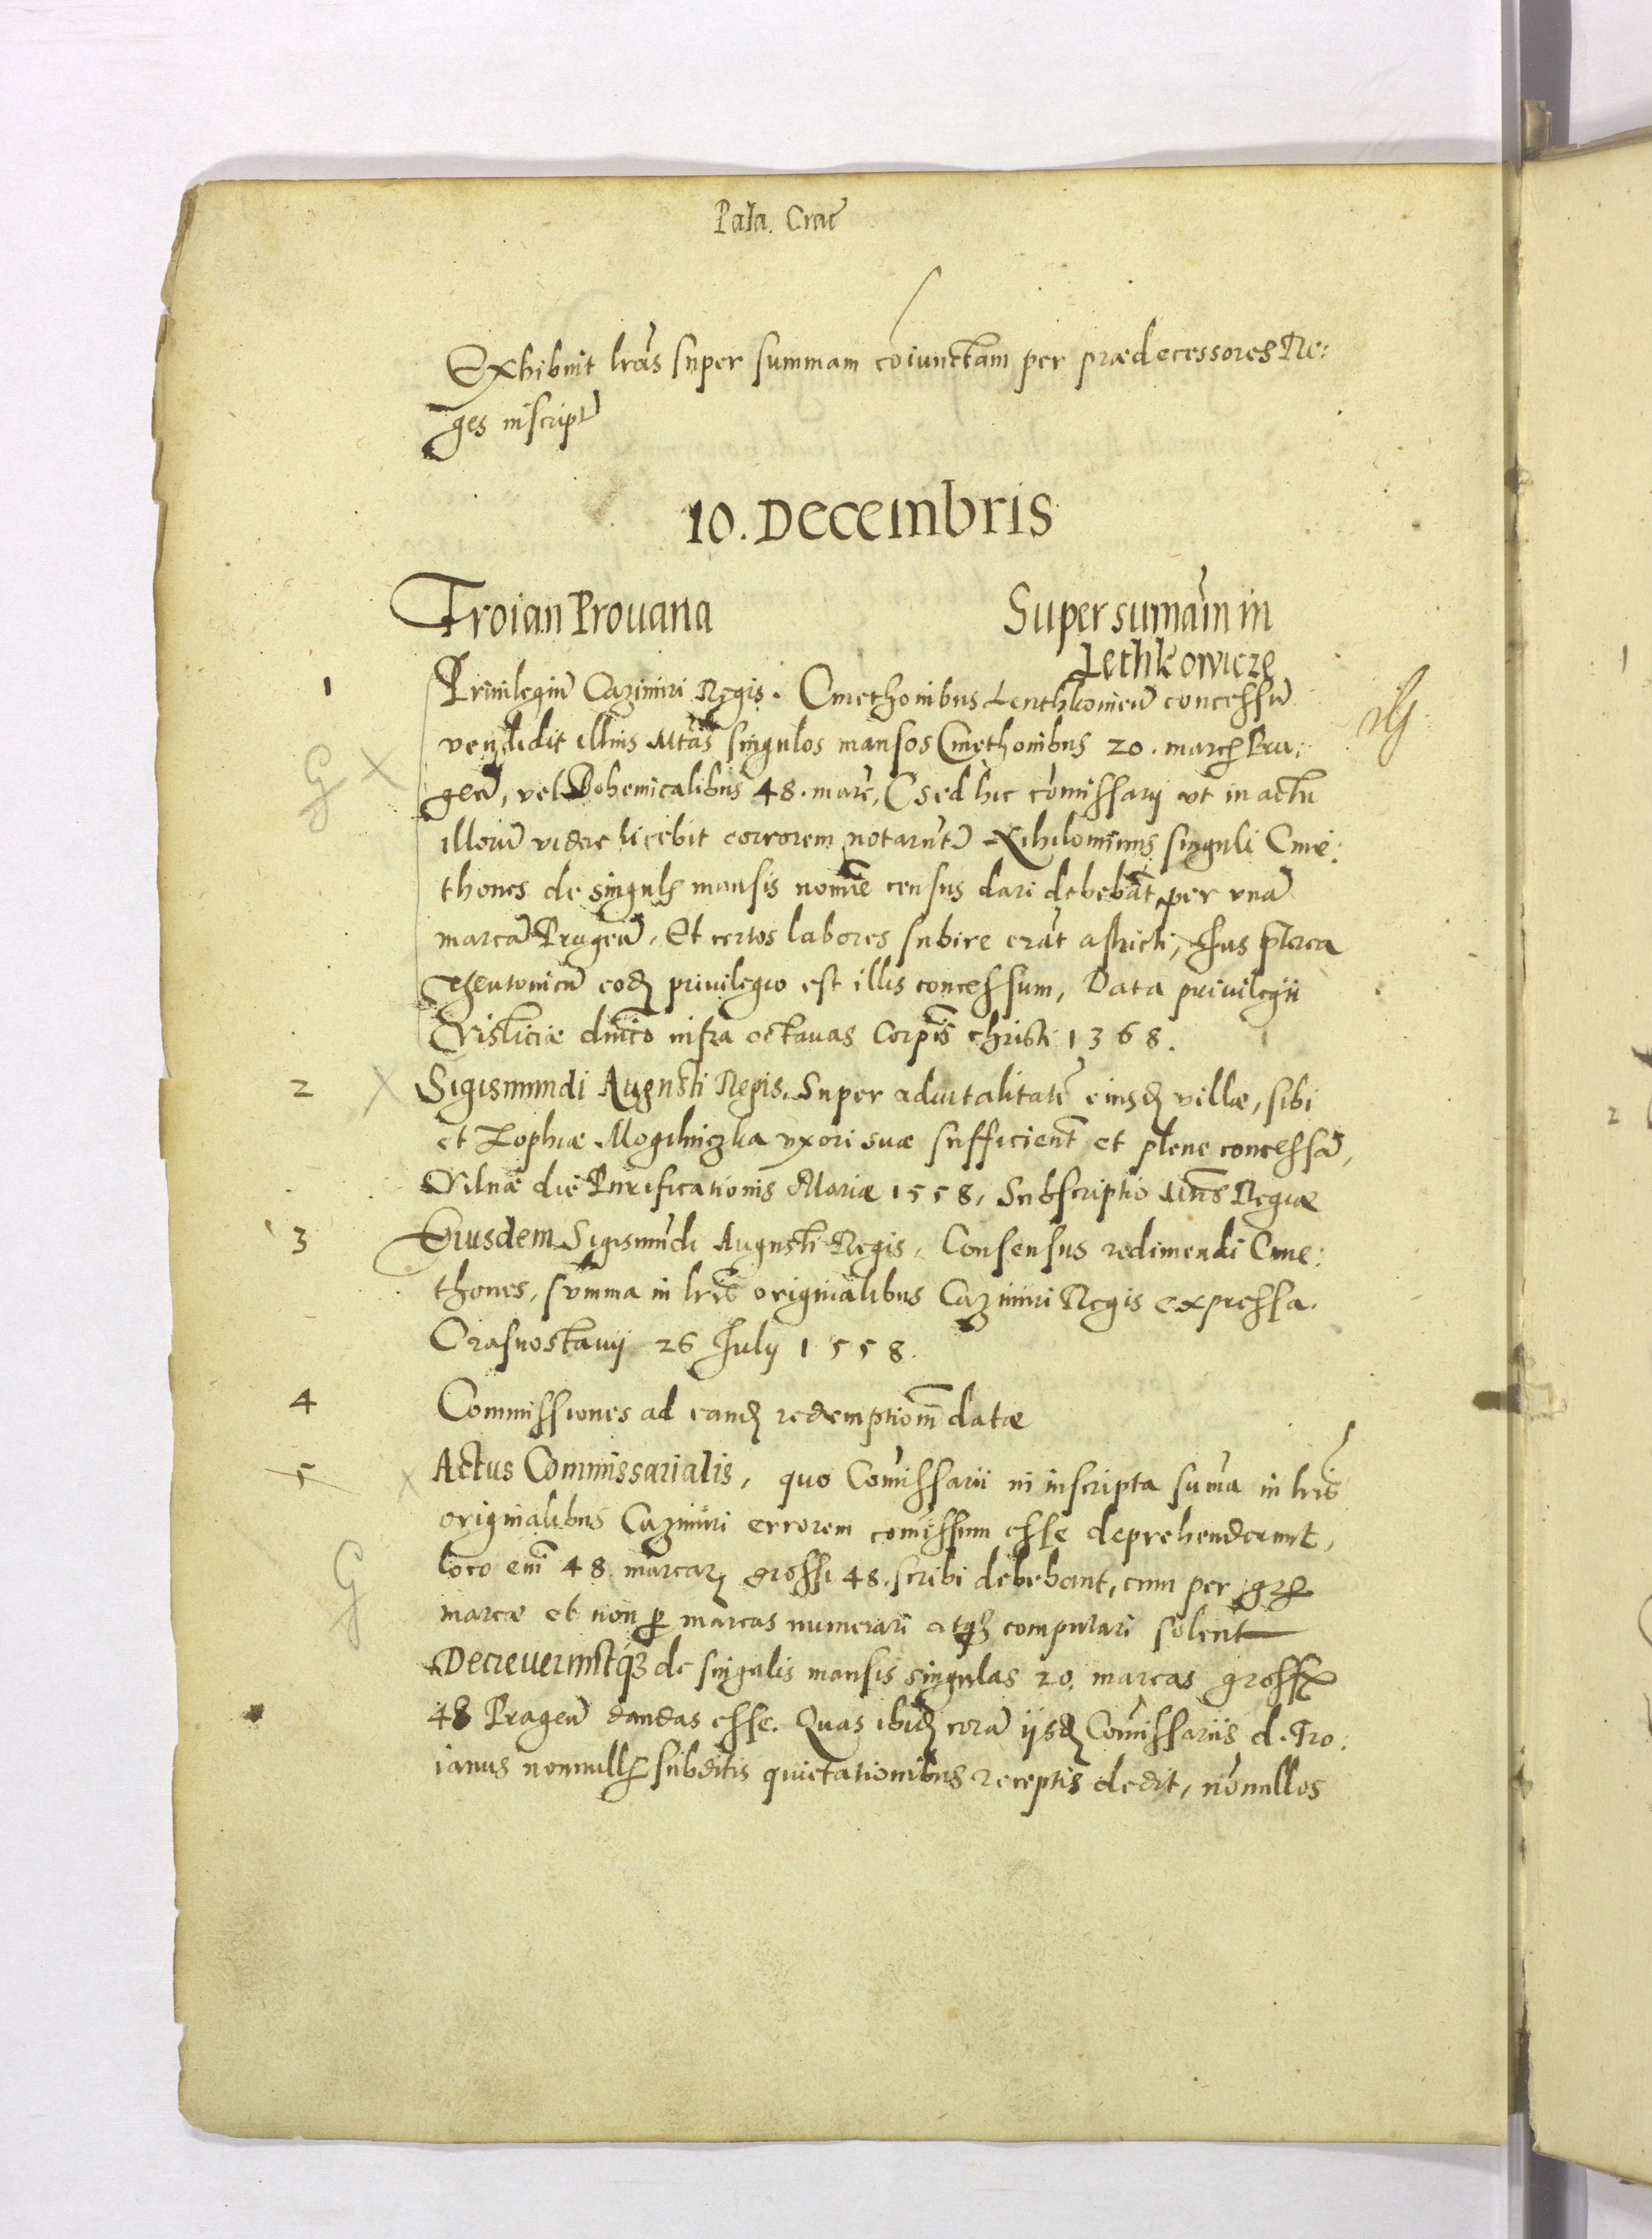 Pala. Crac̃
Exhibuit lr̃as super summam cõiunctam per prædecessores Re:
ges inscript̃
10. Decembris
Troian Prouana
Super sum̃am in
Lethkowicze
1 Priuilegiũ Cazimiri Regis. Cmethonibus Lenthkouieñ concessũ
vendidit illius Mtas̃ singulos mansos Cmethonibus 20. marc̃ Pra:
geñ, vel Bohemicalibus 48. marc̃, (sed hic cõmissarÿ vt in actu
illorũ videre licebit errorem notarũt) Nihilominus singuli Cme:
thones de singul̃ mansis nomĩe census dari debebãt per vnã
marcã Prageñ. Et certos labores subire erãt astricti, Jus p̃terea
Theutonicũ eodẽ priuilegio est illis concessum, Data priuilegii
Visliciæ dnĩco infra octauas Corpĩs christi 1368.
2 Sigismundi Augusti Regis. Super aduitalitatẽ eiusdẽ villæ, sibi
et Zophiæ Mogilniczka vxori suæ sufficient̃ et plene concessã,
Vilnæ die Purificationis Mariæ 1558, Subscriptio Mtĩs Regiæ
3 Eiusdem Sigismũdi Augusti Regis, Consensus redimendi Cme:
thones, summa in lrĩs originalibus Cazimiri Regis expressa.
Crasnostauÿ 26 Julÿ 1558.
4 Commissiones ad eandẽ redemptionẽ datæ
5 Actus Commissarialis, quo Com̃issarii in inscripta sum̃a in lrĩs
originalibus Cazimiri errorem com̃issum esse deprehenderunt,
loco enĩ 48 marcarũ grossi 48. scribi debebant, cum per gr̃
marcæ et non ꝑ marcas numerari atqꝫ computari solent
Decreueruntqꝫ de singulis mansis singulas 20. marcas gross̃
48 Prageñ dandas esse. Quas ibidẽ corã ÿsdẽ Com̃issariis d. Tro:
ianus nonnull̃ subditis quietationibus receptis dedit, nõnullos